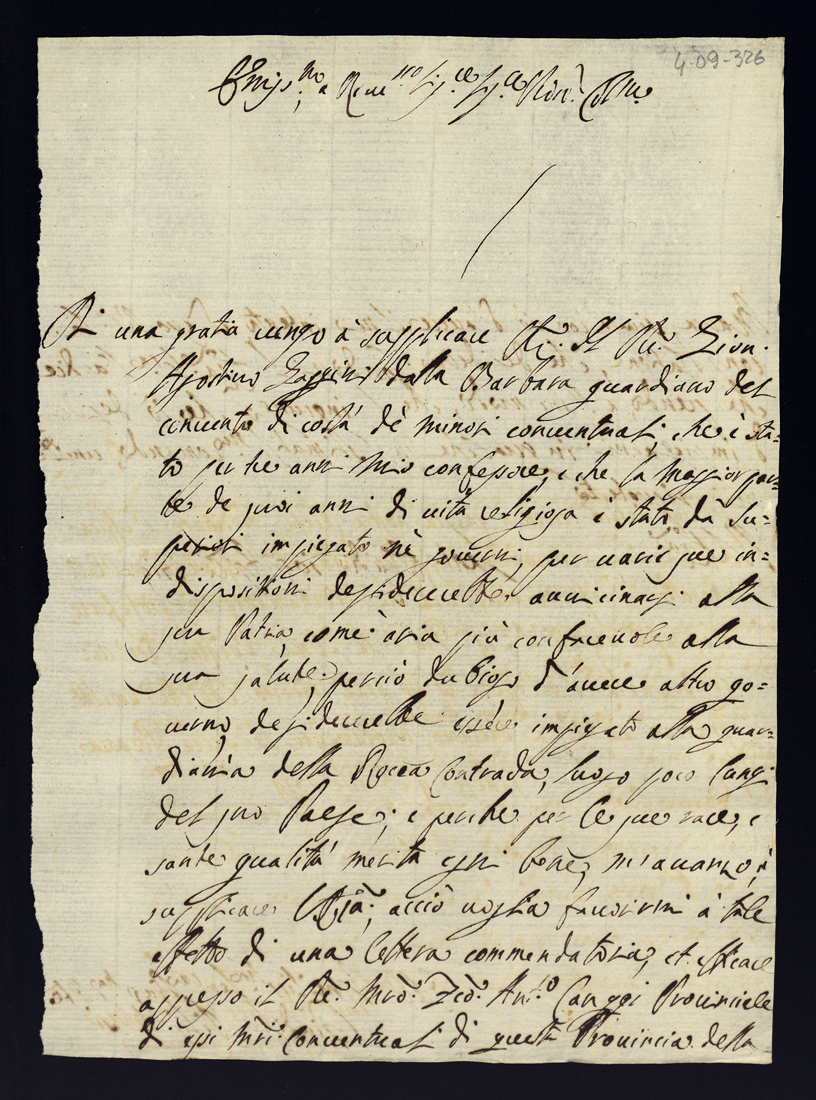 4-09-326
Em.mo e Reu.mo Sig.re Sig.re Pron. Col.mo
Di una gratia uengo à supplicare
Agostino dalla Barbara guardiano del
conuento di costà dè minori conuentuali, che è sta=
to per tre anni mio confessore, e che la maggior par=
te de suoi anni di uita religiosa è stato dà su=
periori impiegato nè gouerni, per uarie sue in=
dispositioni desiderarebbe auuicinarsi alla
sua Patria, come aria più confaceuole alla
sua salute; perciò dubioso d'auere altro go=
uerno, desiderarebbe essere impiegato alla guar=
diania della Rocca Contrada, luogo poco lungi
del suo Paese; e perche per le sue rare, e
sante qualità merita ogni bene, m'auanzo à
supplicare acciò uoglia fauorirmi à tale
effetto di una lettera commendatoria, et efficace
appresso il Ant.o Provinciale
di essi conuentuali di questa Prouincia della